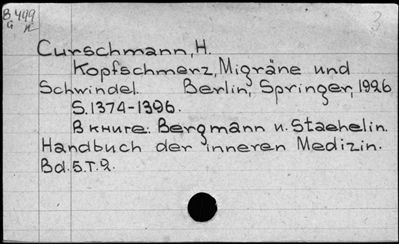 В 499
3
Curschmann, H.
Kopfschmerz, Migräne und
Schwindel. Berlin, Springer, 1926
S. 1374-1396.
В книге: Bergmann и. Staehelin.
Handbuch der inneren Medizin.
Bd. 5. T. 2.